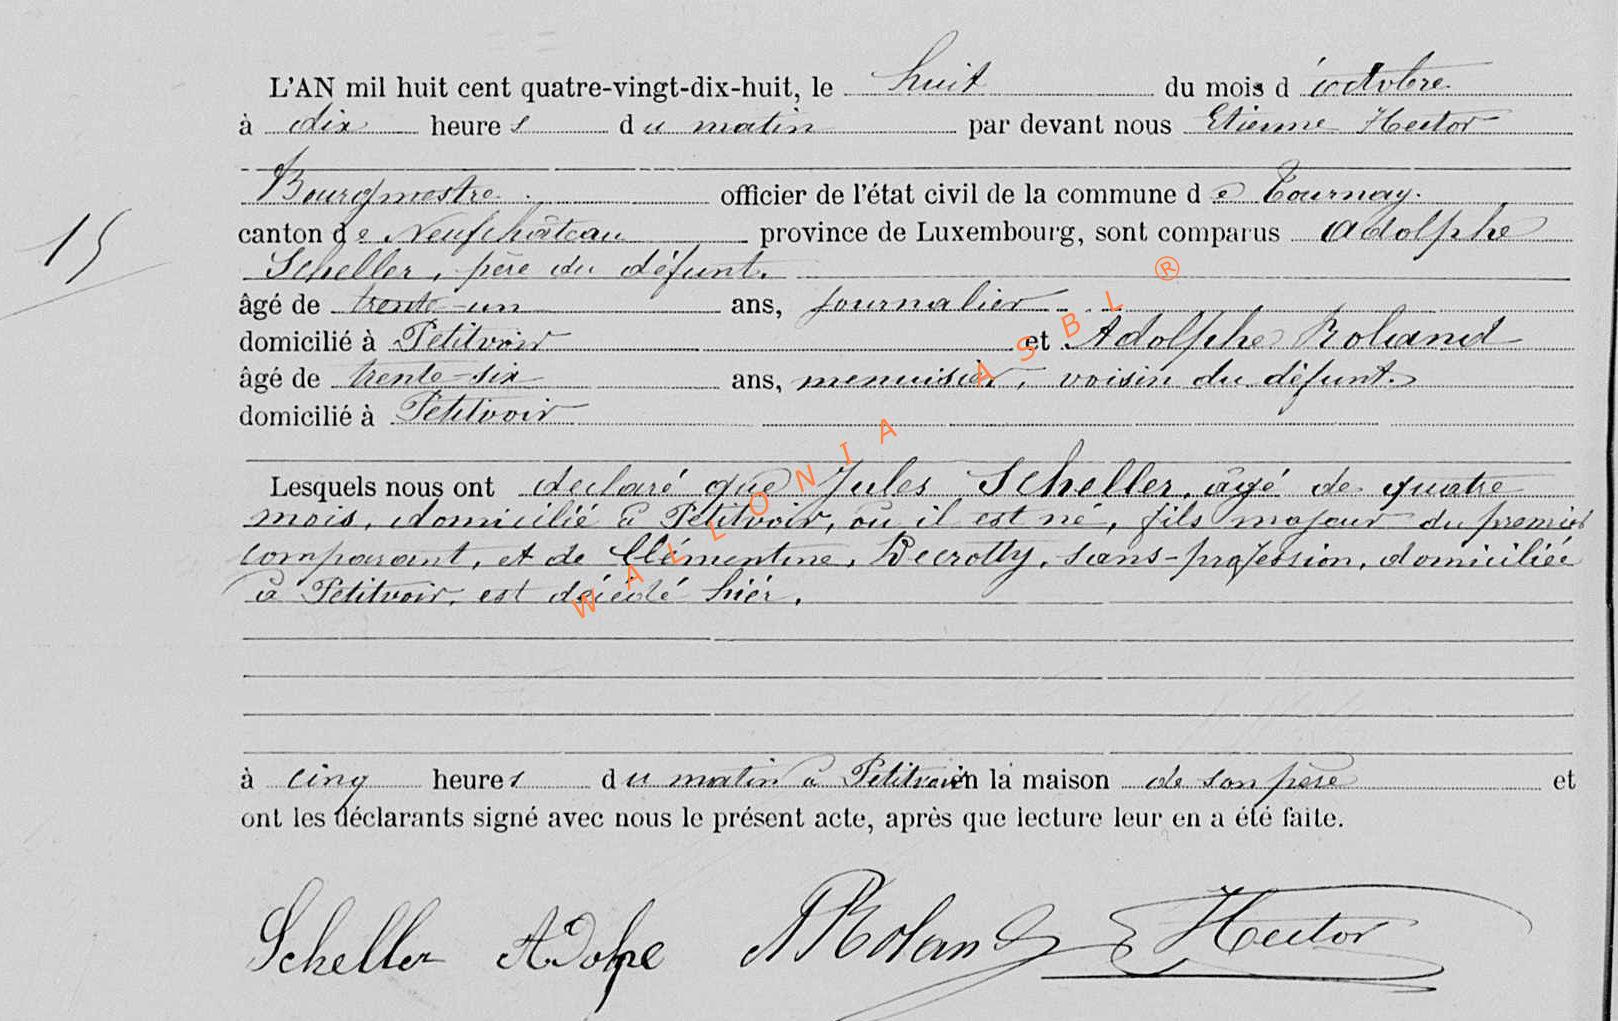 L'AN mil huit cent quatre-vingt-dix-huit, le huit du mois d'octobre
à dix heures du matin par devant nous Etienne Hector
Bourgmestre officier de l'état civil de la commune de Tournay.
15
canton de Neufchâteau province de Luxembourg, sont comparus Adolphe
Scheller, père du défunt.
âgé de trente-un ans, journalier
domicilié à Petitvoir et Adolphe Roland
âgé de trente-six ans, menuisier, voisin du défunt.
domicilié à Petitvoir
Lesquels nous ont déclaré que Jules Scheller, âgé de quatre
mois, domicilié à Petitvoir, où il est né, fils majeur du premier
comparant, et de Clémentine, Recrotty, sans-profession, domiciliée
à Petitvoir, est décédé hier,
à cinq heures du matin à Petitvoir en la maison de son père et
ont les déclarants signé avec nous le présent acte, après que lecture leur en a été faite.
Scheller Adolpe ARoland Hector
WALLONIA ASBL ®